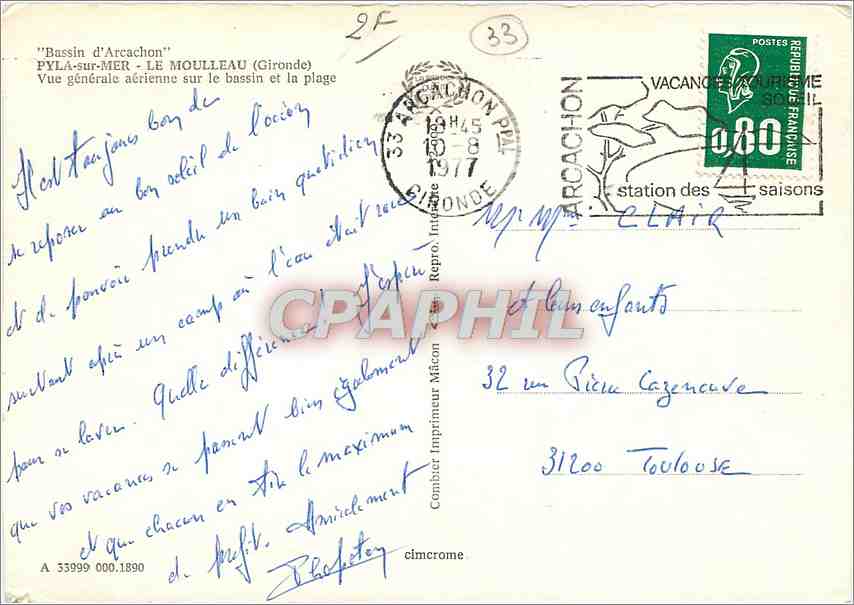 2F
33
"Bassin d'Arcachon"
PYLA-sur-MER - LE MOULLEAU (Gironde)
Vue générale aérienne sur le bassin et la plage
33 ARCACHON PPAL
18H45
10-8
1977
GIRONDE
ARCACHON
VACANCES TOURISME
SOLEIL
station des saisons
POSTES
REPUBLIQUE FRANÇAISE
0,80
Il est toujours bon de
se reposer au bon soleil de l'océan
et de pouvoir prendre un bain quotidien
surtout après un camp où l'eau était rare
pour se laver. Quelle différence! J'espère
que vos vacances se passent bien également
et que chacun en tire le maximum
de profit. Amicalement
Mr Mme CLAIR
et leurs enfants
32 rue Pierre Cazeneuve
31200 TOULOUSE
Combier Imprimeur Mâcon
Repro. Interdite
CPAPHIL
A 33999 000.1890
cimcrome